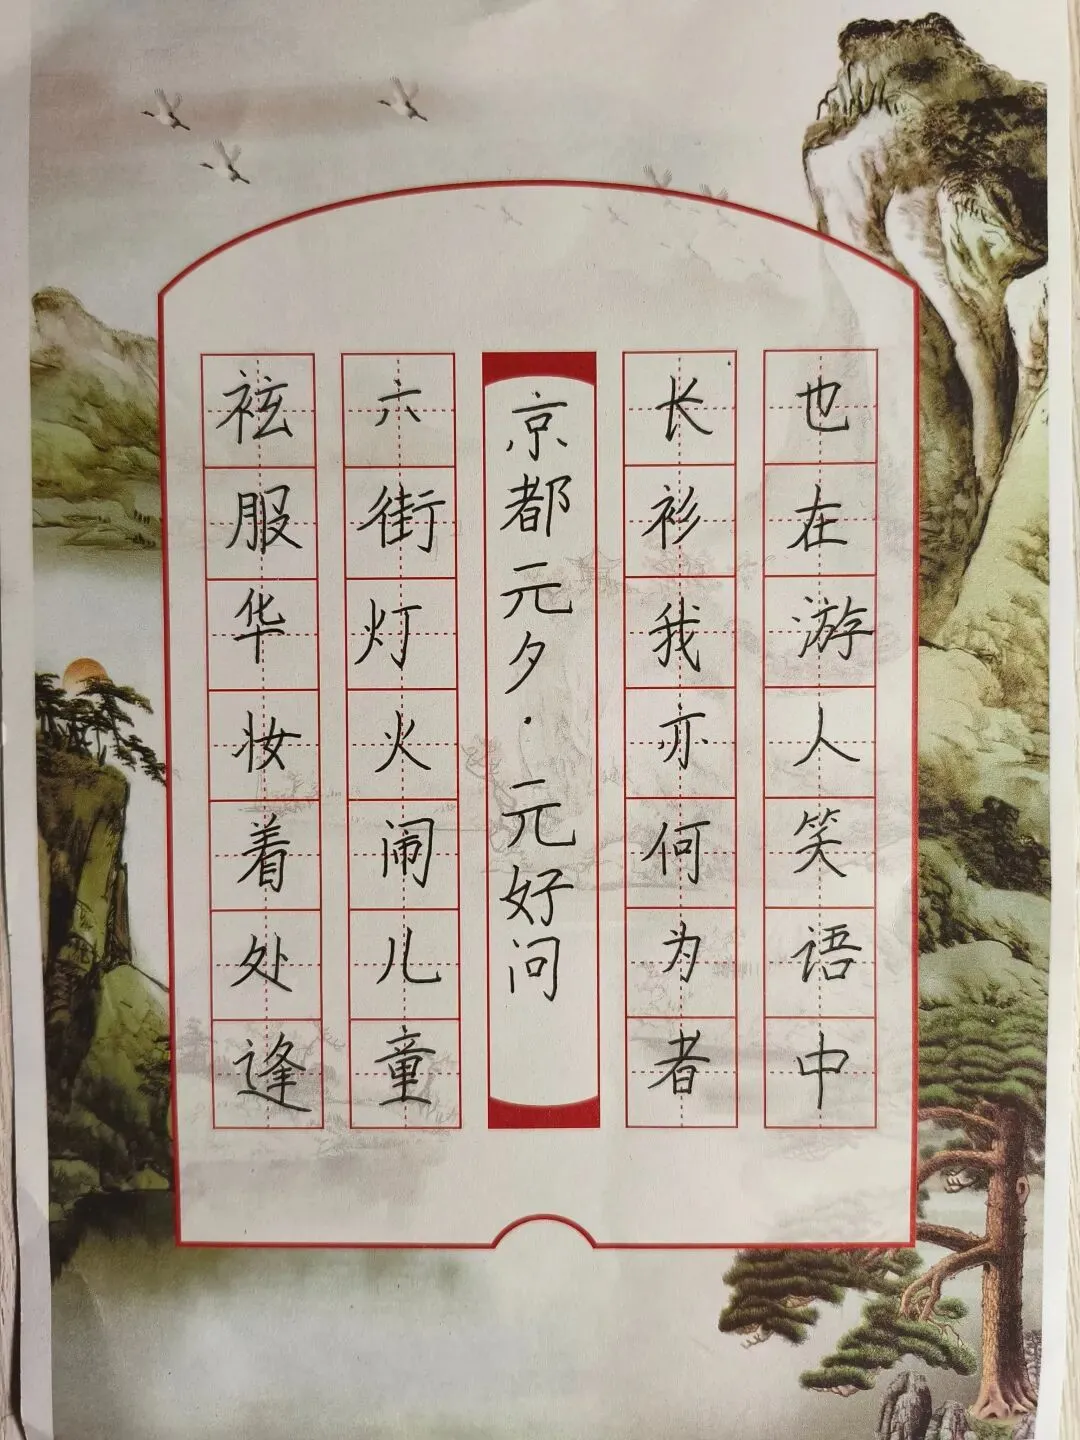 袨服华妆着处逢
六街灯火闹儿童
京都元夕·元好问
长衫我亦何为者
也在游人笑语中